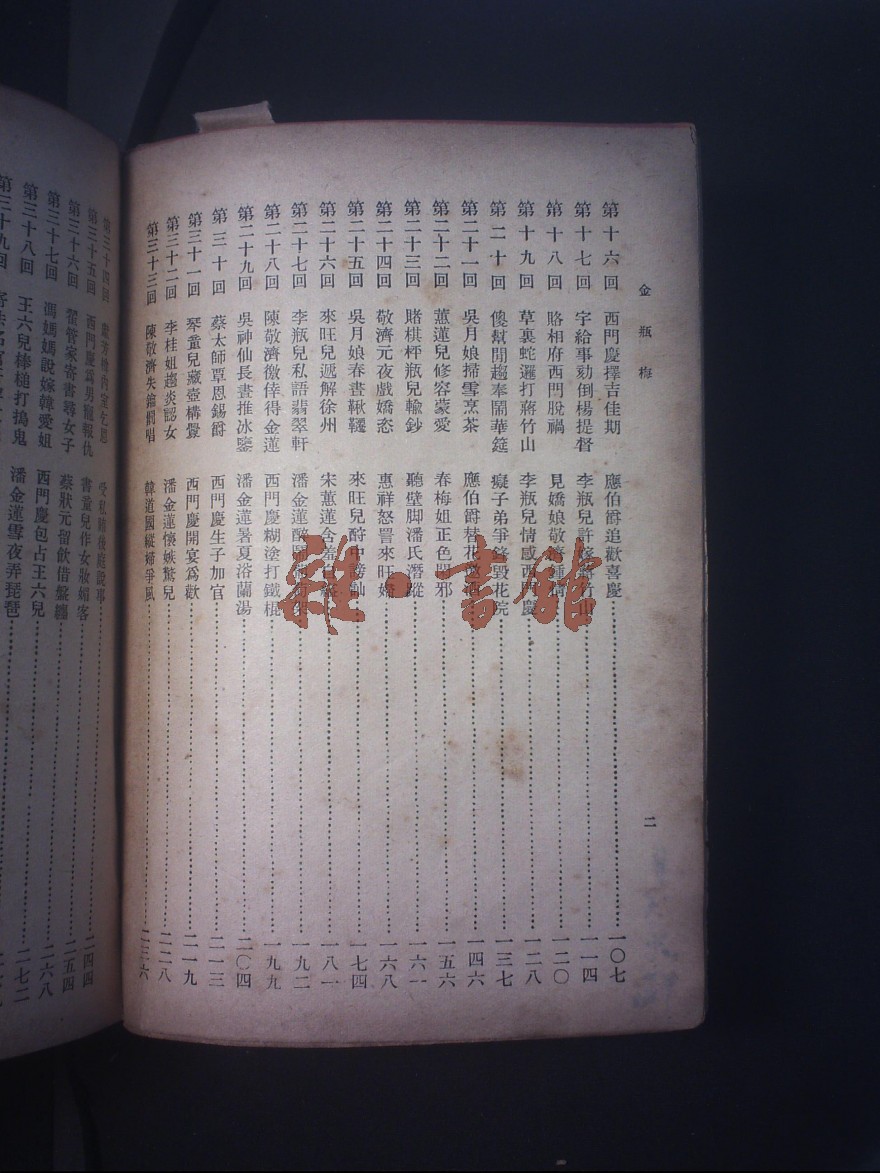 金瓶梅
二
第十六回 西門慶擇吉佳期 應伯爵追歡喜慶 一〇七
第十七回 宇給事劾倒楊提督 李瓶兒許 蔣竹山 一一四
第十八回 賂相府西門脫禍 見嬌娘敬濟 一二〇
第十九回 草裏蛇邏打蔣竹山 李瓶兒情感西門慶 一二八
第二十回 傻幫閒趨奉鬧華筵 癡子弟爭鋒毀花院 一三七
第二十一回 吳月娘掃雪烹茶 應伯爵替花 一四六
第二十二回 蕙蓮兒修容蒙愛 春梅姐正色閑邪 一五六
第二十三回 賭棋枰瓶兒輸鈔 聽壁脚潘氏潛蹤 一六一
第二十四回 敬濟元夜戲嬌恣 惠祥怒詈來旺婦 一六八
第二十五回 吳月娘春晝鞦韆 來旺兒醉中謗訕 一七四
第二十六回 來旺兒遞解徐州 宋蕙蓮含羞 一八一
第二十七回 李瓶兒私語翡翠軒 潘金蓮醉鬧 一九二
第二十八回 陳敬濟儌倖得金蓮 西門慶糊塗打鐵棍 一九九
第二十九回 吳神仙長晝推冰鑒 潘金蓮暑夏浴蘭湯 二〇四
第三十回 蔡太師覃恩錫爵 西門慶生子加官 二一三
第三十一回 琴童兒藏壺構釁 西門慶開宴爲歡 二一九
第三十二回 李桂姐趨炎認女 潘金蓮懷嫉驚兒 二二八
第三十三回 陳敬濟失鑰罰唱 韓道國縱婦爭風 二三六
第三十四回 獻芳樽內室乞恩 受私賄後庭說事 二四四
第三十五回 西門慶爲男寵報仇 書童兒作女妝媚客 二五四
第三十六回 翟管家寄書尋女子 蔡狀元留飲借盤纏 二六八
第三十七回 馮媽媽說嫁韓愛姐 西門慶包占王六兒 二七二
第三十八回 王六兒棒槌打搗鬼 潘金蓮雪夜弄琵琶
第三十九回
雜·書館